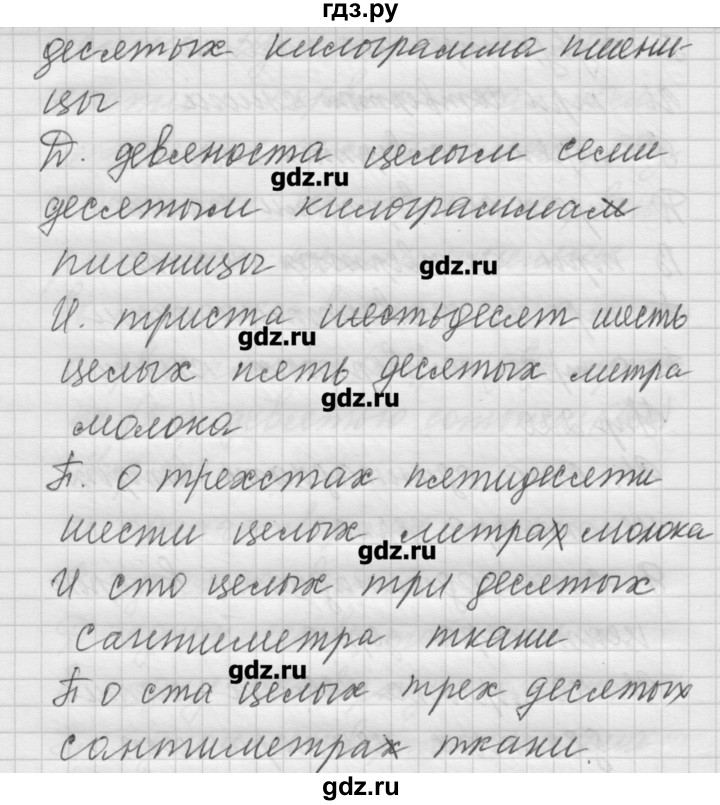 гдз.ру
десятых килограмма пшени-
цы
Д. девяноста целым семи
gdz.ru
десятым килограммам
пшеницы
gdz.ru
И. триста шестьдесят шесть
gdz.ru
целых пять десятых метра
gdz.ru
молока
П. о трехстах пятидесяти
шести целых метрах молока
gdz.ru
И сто целых три десятых
сантиметра ткани
gdz.ru
П о ста целых трех десятых
сантиметрах ткани.
gdz.ru